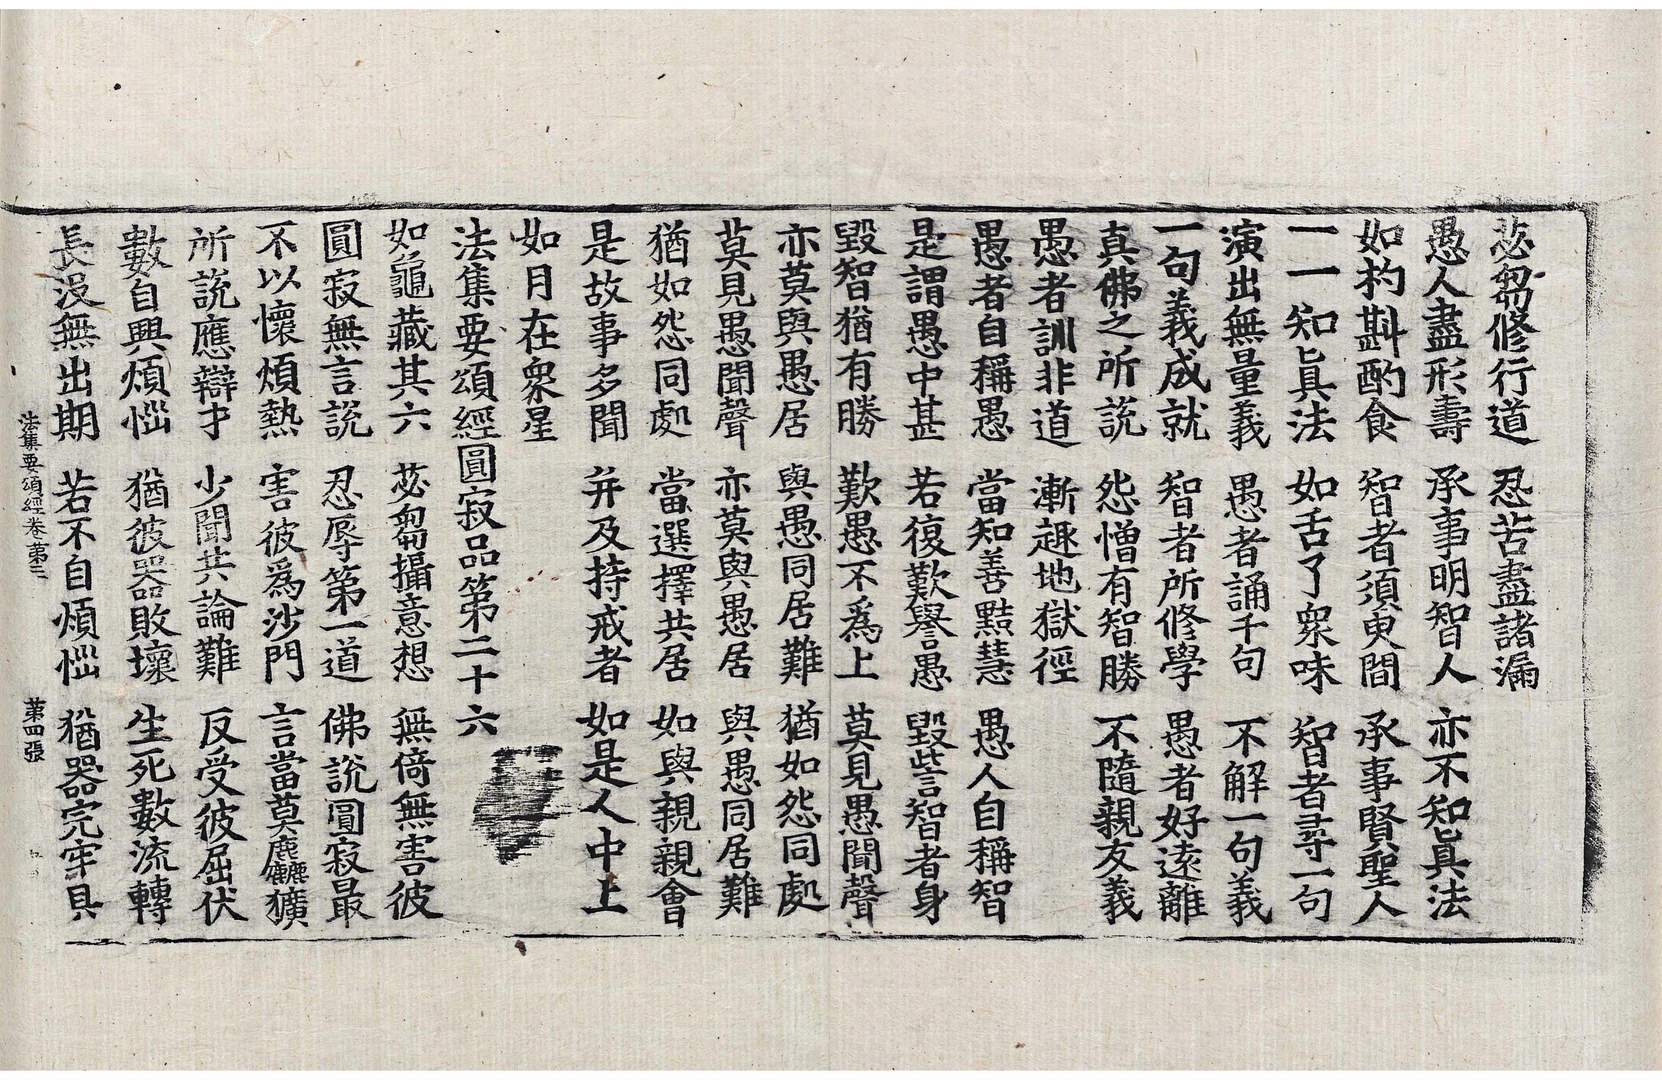 苾芻修行道　忍苦盡諸漏
愚人盡形壽　承事明智人　亦不知眞法
如杓斟酌食　智者須臾間　承事賢聖人
一一知眞法　如舌了衆味　智者尋一句
演出無量義　愚者誦千句　不解一句義
一句義成就　智者所修學　愚者好遠離
真佛之所說　怨憎有智勝　不隨親友義
愚者訓非道　漸趣地獄徑
愚者自稱愚　當知善黠慧　愚人自稱智
是謂愚中甚　若復歎譽愚　毀訾智者身
毀智猶有勝　歎愚不爲上　莫見愚聞聲
亦莫與愚居　與愚同居難　猶如怨同處
莫見愚聞聲　亦莫與愚居　與愚同居難
猶如怨同處　當選擇共居　如與親親會
是故事多聞　并及持戒者　如是人中上
如月在衆星
法集要頌經圓寂品第二十六
如龜藏其六　苾芻攝意想　無倚無害彼
圓寂無言說　忍辱第一道　佛說圓寂最
不以懷煩熱　害彼爲沙門　言當莫麤獷
所說應辯才　少聞共論難　反受彼屈伏
數自興煩惱　猶彼器敗壞　生死數流轉
長沒無出期　若不自煩惱　猶器完牢具
法集要頌經卷第三　第四張